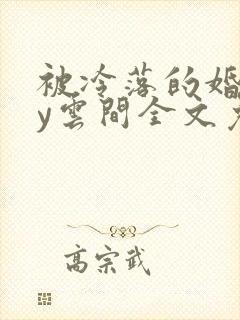 被冷落的婚
y雲間全文
高宗武